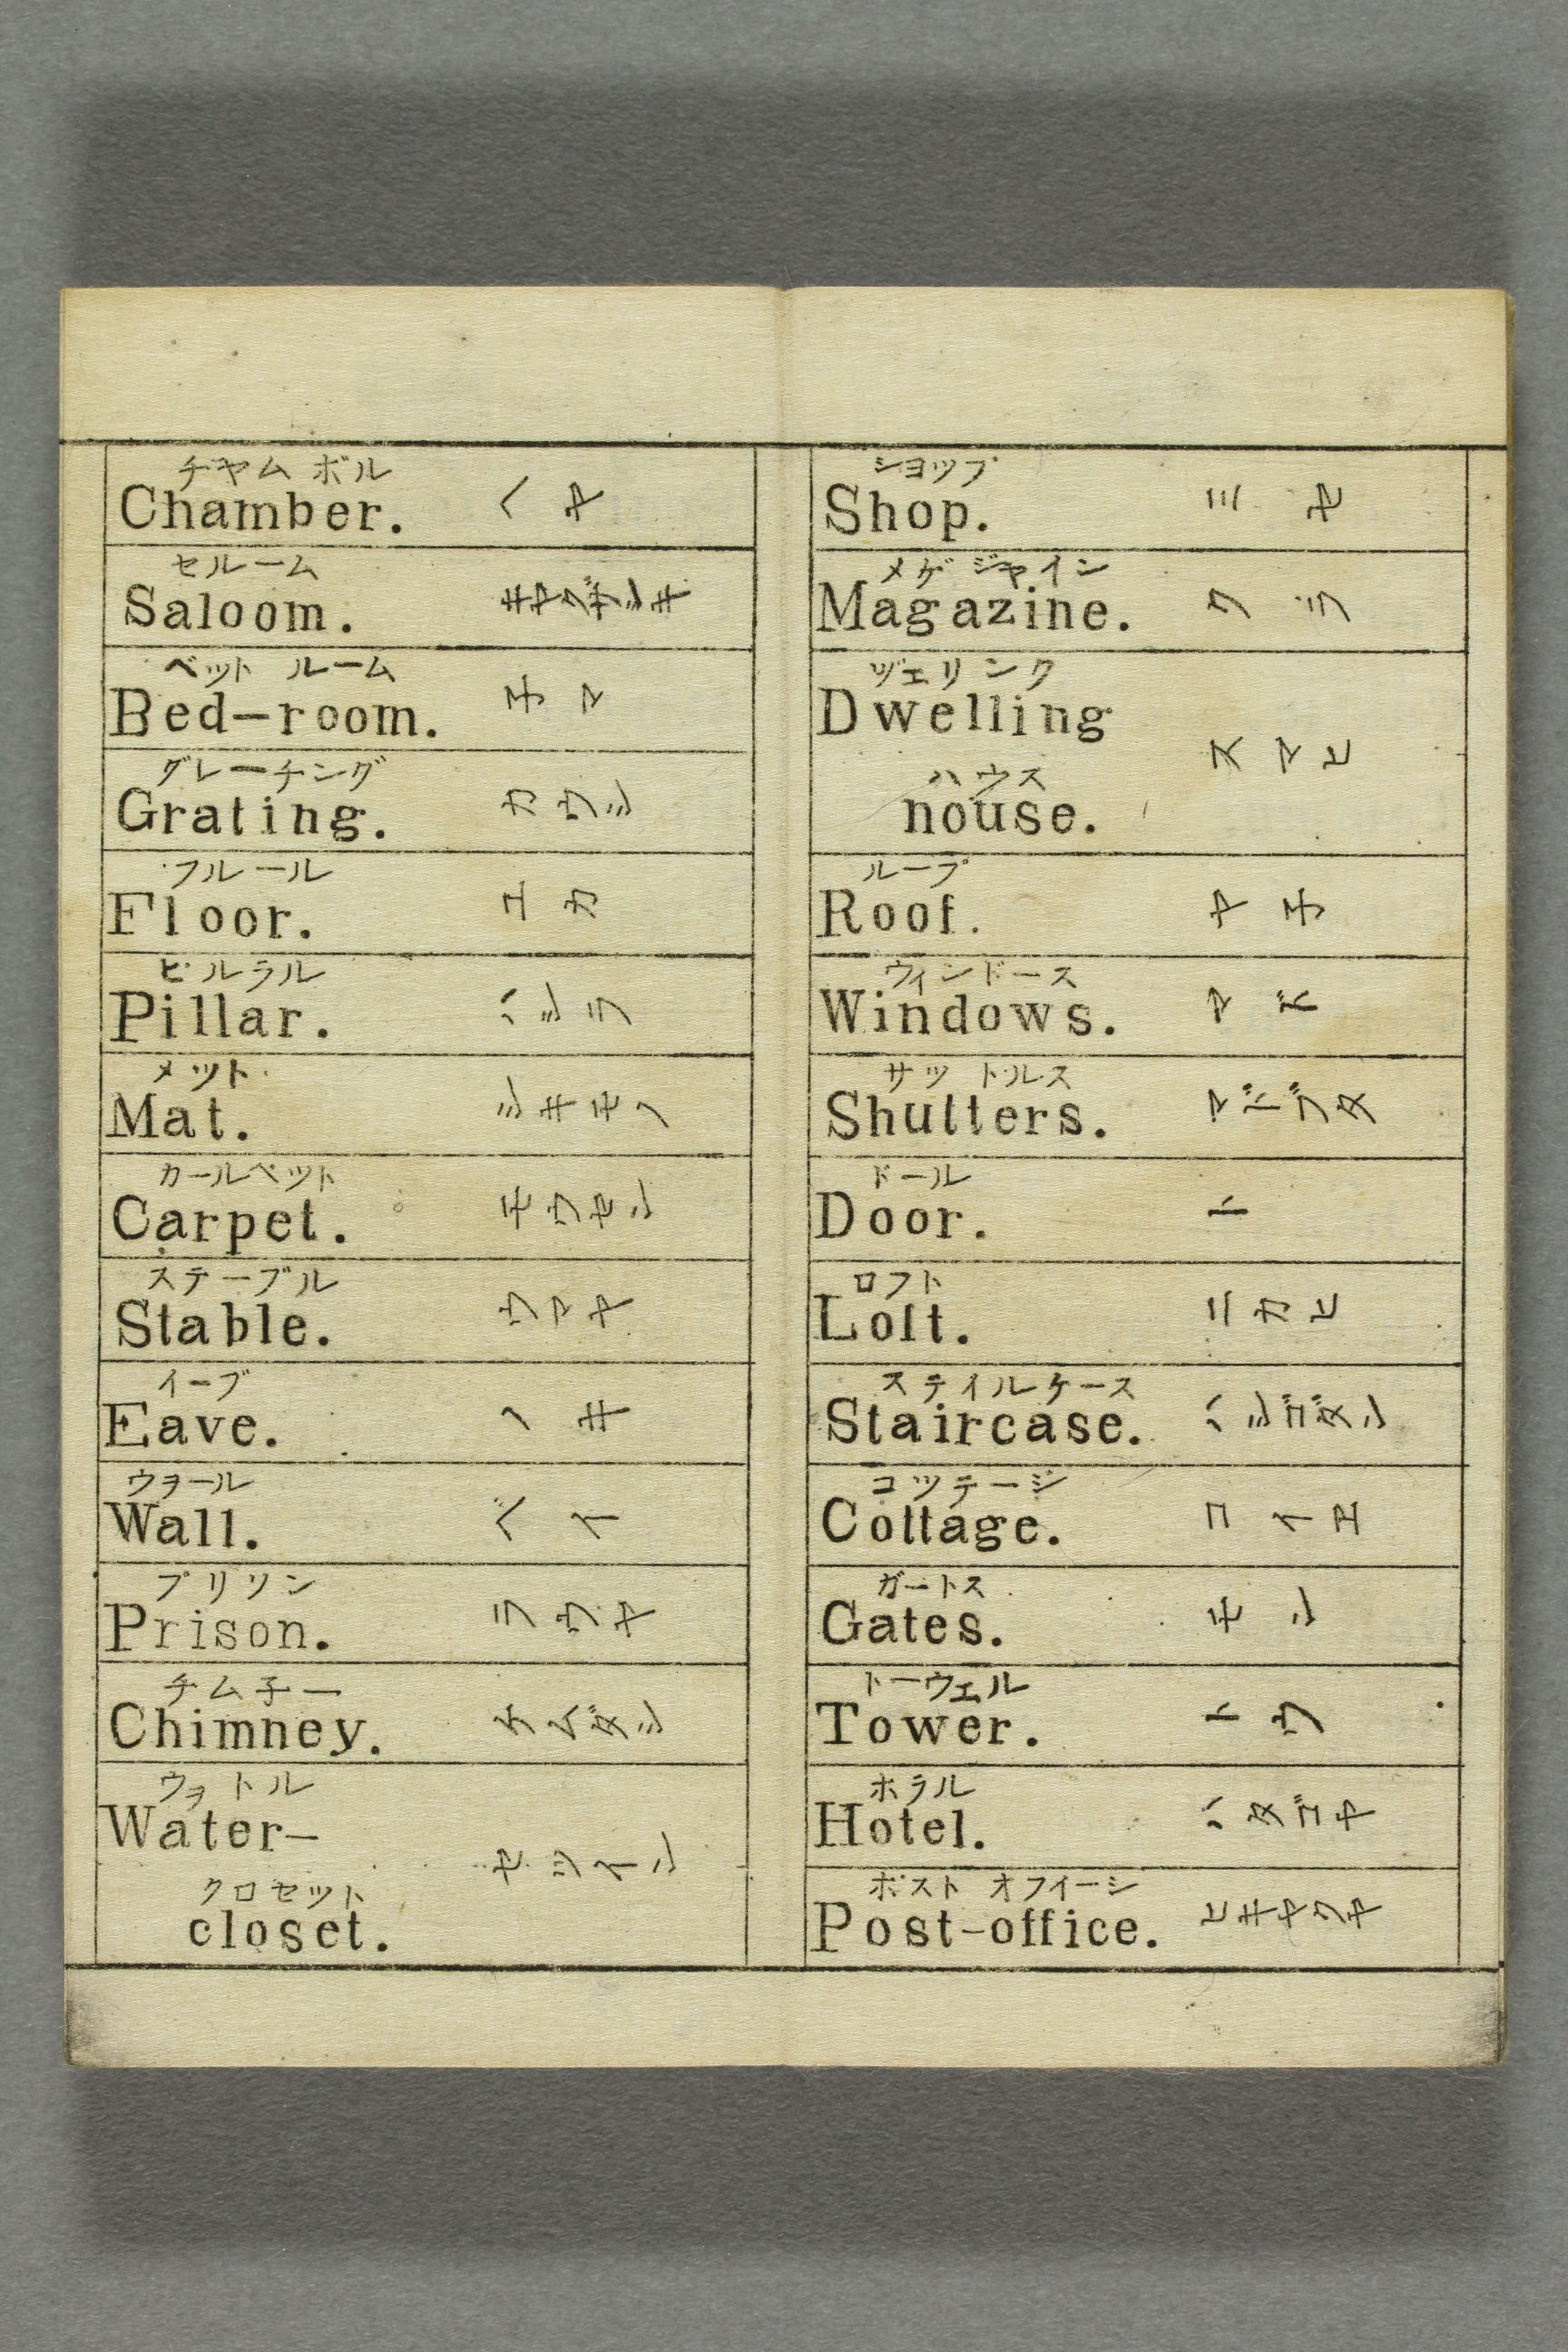 チヤムボル
Chamber. ヘヤ
セルーム
Saloom. キヤクザシキ
ベット ルーム
Bed-room. ネマ
グレーチング
Grating. カウシ
フルール
Floor. ユカ
ピルラル
Pillar. ハシラ
メット
Mat. シキモノ
カールペット
Carpet. モウセン
ステーブル
Stable. ウマヤ
イーブ
Eave. ノキ
ウヲール
Wall. ベイ
プリソン
Prison. ラウヤ
チム子ー
Chimney. ケムダシ
ウヲトル
Water-
クロセット
closet. セツイン
ショップ
Shop. ミセ
メゲジャイン
Magazine. クラ
ヅェリンク
Dwelling
ハウス
nouse. スマヒ
ループ
Roof. ヤネ
ウィンドース
Windows. マド
サットルス
Shutters. マドブタ
ドール
Door. ト
ロフト
Loft. ニカヒ
ステイルケース
Staircase. ハシゴダン
コッテージ
Cottage. コイヱ
ガートス
Gates. モン
トーウェル
Tower. トウ
ホラル
Hotel. ハタゴヤ
ポスト オフイーシ
Post-office. ヒキヤクヤ